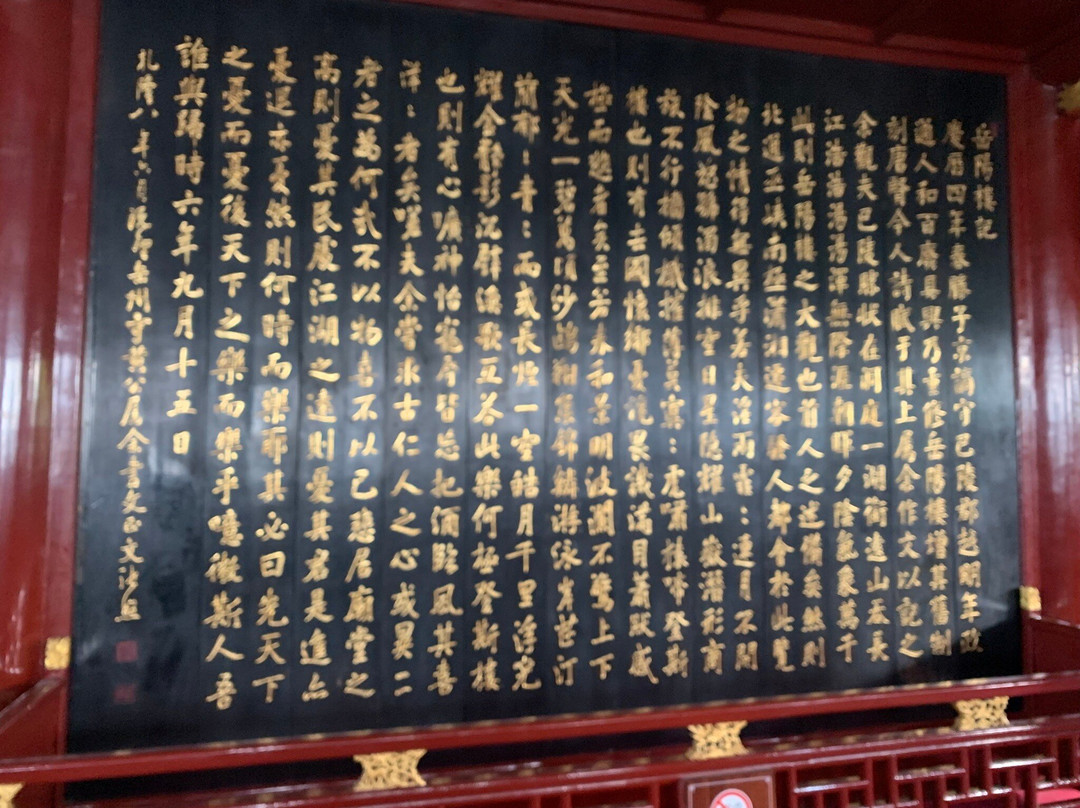 岳陽樓記
慶曆四年春滕子京謫守巴陵郡越明年政
通人和百廢具興乃重修岳陽樓增其舊制
刻唐賢今人詩賦于其上属余作文以記之
余觀夫巴陵勝状在洞庭一湖銜遠山吞長
江浩浩蕩蕩渾無際涯朝暉夕陰氣象萬千
此則岳陽樓之大觀也前人之述備矣然則
北通巫峽南極瀟湘遷客騷人都會於此覽
物之情得無異乎若夫淫雨霏：連月不開
陰風怒號濁浪排空日星隱耀山嶽潛形商
旅不行檣傾楫摧薄暮冥：虎嘯猿啼登斯
樓也則有去國懷鄉憂讒畏譏滿目蕭然感
極而悲者矣至若春和景明波瀾不驚上下
天光一碧萬頃沙鷗翔集錦鱗游泳岸芷汀
蘭郁：青：而或長煙一空皓月千里浮光
耀金靜影沉璧漁歌互答此樂何極登斯樓
也則有心曠神怡寵辱皆忘把酒臨風其喜
洋：者矣嗟夫余嘗求古仁人之心或異二
者之為何哉不以物喜不以己悲居廟堂之
高則憂其民處江湖之遠則憂其君是進亦
憂退亦憂然則何時而樂耶其必曰先天下
之憂而憂後天下之樂而樂乎噫微斯人吾
誰與歸時六年九月十五日
乾隆八年六月岳州守黄公属余書文正文